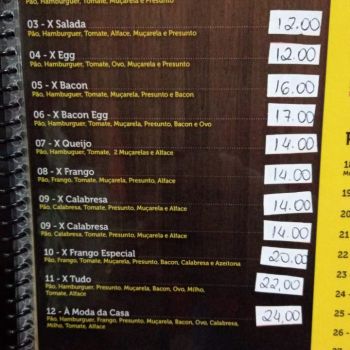 Pão, Hamburguer, Tomate, Muçarela e Presunto
03 - X Salada 12.00
Pão, Hamburguer, Tomate, Alface, Muçarela e Presunto
04 - X Egg 12.00
Pão, Hamburguer, Tomate, Ovo, Muçarela e Presunto
05 - X Bacon 16.00
Pão, Hamburguer, Tomate, Muçarela, Presunto e Bacon
06 - X Bacon Egg 17.00
Pão, Hamburguer, Tomate, Muçarela, Presunto, Bacon e Ovo
07 - X Queijo 14.00
Pão, Hambuguer, Tomate, 2 Muçarelas e Alface
08 - X Frango 14.00
Pão, Frango, Tomate, Muçarela, Presunto, Alface
09 - X Calabresa 14.00
Pão, Calabresa, Tomate, Presunto, Muçarela e Alface
09 - X Calabresa 14.00
Pão, Calabresa, Tomate, Presunto, Muçarela e Alface
10 - X Frango Especial 20.00
Pão, Frango, Tomate, Muçarela, Presunto, Bacon, Calabresa e Azeitona
11 - X Tudo 22,00
Pão, Hamburguer, Presunto, Muçarela, Bacon, Ovo, Milho,
Tomate, Alface
12 - À Moda da Casa 24,00
Pão, Hamburguer, Frango, Presunto, Muçarela, Bacon, Ovo, Calabresa,
Milho, Tomate, Alface
18
19 -
20 -
21 -
22 -
23 -
24 -
25 -
26 -
27 -